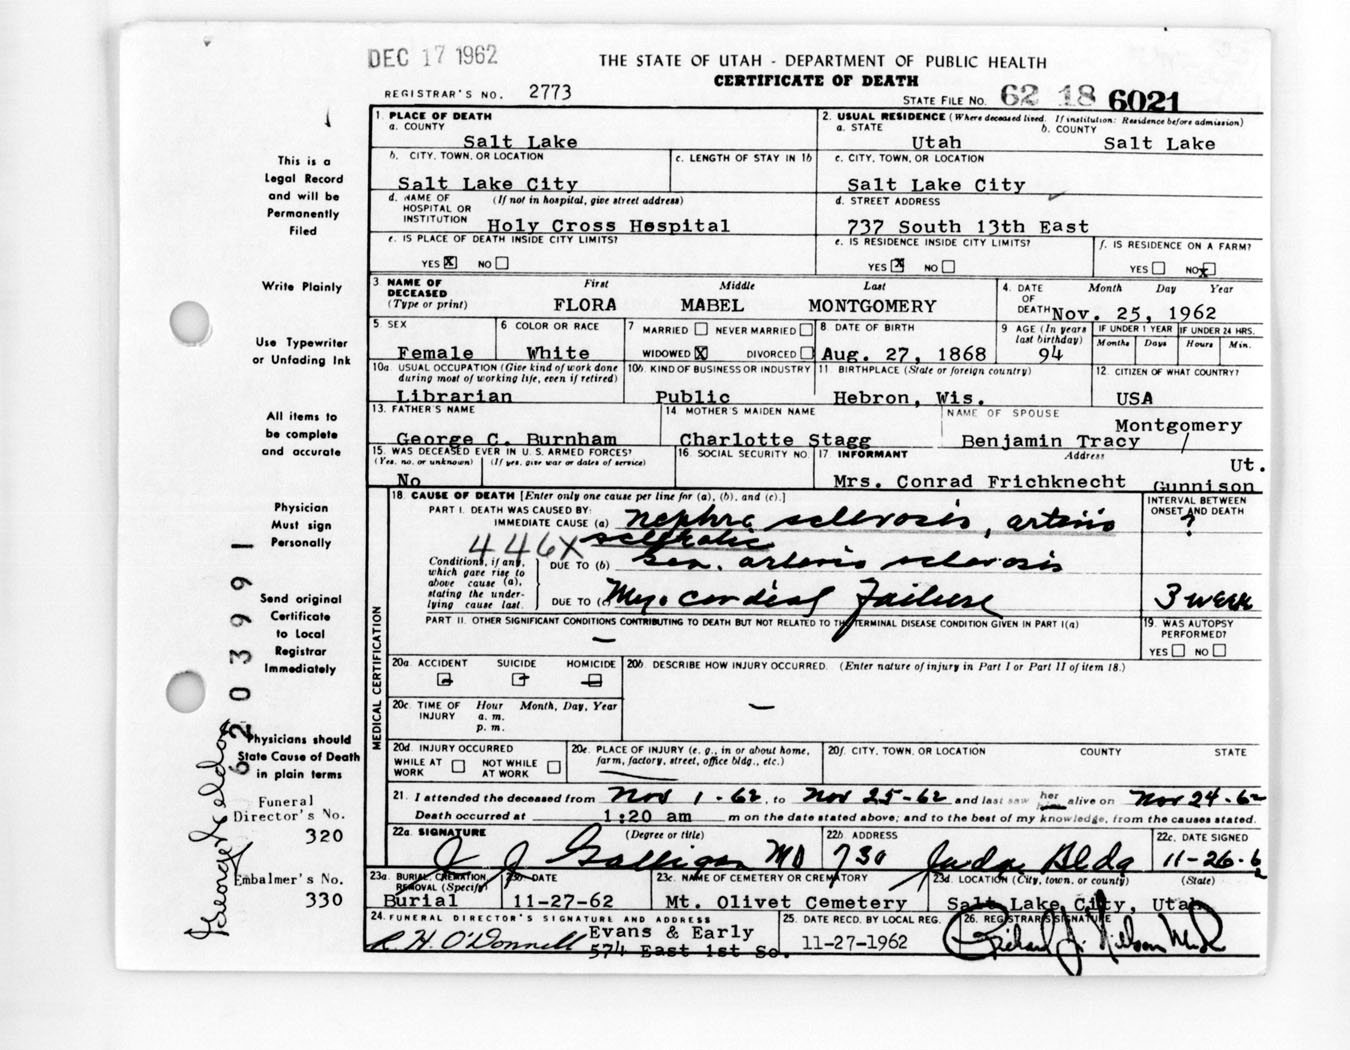 DEC 17 1962
THE STATE OF UTAH - DEPARTMENT OF PUBLIC HEALTH
CERTIFICATE OF DEATH
REGISTRAR'S NO. 2773
STATE FILE NO. 62 18 6021
This is a
Legal Record
and will be
Permanently
Filed
Write Plainly
Use Typewriter
or Unfading Ink
All items to
be complete
and accurate
Physician
Must sign
Personally
Send original
Certificate
to Local
Registrar
Immediately
Physicians should
State Cause of Death
in plain terms
Funeral
Director's No.
320
Embalmer's No.
330
62 0399 1
1. PLACE OF DEATH
a. COUNTY
Salt Lake
2. USUAL RESIDENCE (Where deceased lived. If institution: Residence before admission)
a. STATE b. COUNTY
Utah Salt Lake
b. CITY, TOWN, OR LOCATION c. LENGTH OF STAY IN 1b
Salt Lake City
c. CITY, TOWN, OR LOCATION
Salt Lake City
d. NAME OF HOSPITAL OR INSTITUTION (If not in hospital, give street address)
Holy Cross Hospital
d. STREET ADDRESS
737 South 13th East
e. IS PLACE OF DEATH INSIDE CITY LIMITS?
YES X NO
e. IS RESIDENCE INSIDE CITY LIMITS? f. IS RESIDENCE ON A FARM?
YES X NO YES NO X
3 NAME OF DECEASED (Type or print) First Middle Last
FLORA MABEL MONTGOMERY
4. DATE OF DEATH Month Day Year
Nov. 25, 1962
5. SEX 6 COLOR OR RACE 7 MARRIED NEVER MARRIED
WIDOWED X DIVORCED
Female White
8 DATE OF BIRTH
Aug. 27, 1868
9 AGE (In years last birthday) IF UNDER 1 YEAR IF UNDER 24 HRS.
Months Days Hours Min.
94
10a. USUAL OCCUPATION (Give kind of work done during most of working life, even if retired)
Librarian
10b. KIND OF BUSINESS OR INDUSTRY
Public
11. BIRTHPLACE (State or foreign country)
Hebron, Wis.
12. CITIZEN OF WHAT COUNTRY?
USA
13. FATHER'S NAME
George C. Burnham
14 MOTHER'S MAIDEN NAME
Charlotte Stagg
NAME OF SPOUSE
Benjamin Tracy Montgomery
15. WAS DECEASED EVER IN U. S. ARMED FORCES?
(Yes, no, or unknown) (If yes, give war or dates of service)
No
16. SOCIAL SECURITY NO.
17. INFORMANT Address
Mrs. Conrad Frichknecht Gunnison Ut.
MEDICAL CERTIFICATION
18. CAUSE OF DEATH [Enter only one cause per line for (a), (b), and (c).]
INTERVAL BETWEEN ONSET AND DEATH
PART I. DEATH WAS CAUSED BY:
IMMEDIATE CAUSE (a) Nephro sclerosis, arterio ?
sclerotic
446X
Conditions, if any, which gave rise to above cause (a), stating the underlying cause last.
DUE TO (b) Gen. arterio sclerosis
DUE TO (c) Myocardial Failure 3 week
PART II. OTHER SIGNIFICANT CONDITIONS CONTRIBUTING TO DEATH BUT NOT RELATED TO THE TERMINAL DISEASE CONDITION GIVEN IN PART I(a)
19. WAS AUTOPSY PERFORMED?
YES NO
20a. ACCIDENT SUICIDE HOMICIDE
20b. DESCRIBE HOW INJURY OCCURRED. (Enter nature of injury in Part I or Part II of item 18.)
20c. TIME OF INJURY Hour Month, Day, Year
a. m.
p. m.
20d. INJURY OCCURRED
WHILE AT WORK NOT WHILE AT WORK
20e. PLACE OF INJURY (e. g., in or about home, farm, factory, street, office bldg., etc.)
20f. CITY, TOWN, OR LOCATION COUNTY STATE
21. I attended the deceased from Nov 1-62, to Nov 25-62 and last saw her him alive on Nov 24-62
Death occurred at 1:20 am m on the date stated above; and to the best of my knowledge, from the causes stated.
22a. SIGNATURE (Degree or title)
J Galligan MD
22b. ADDRESS
730 Judge Bldg
22c. DATE SIGNED
11-26-62
23a. BURIAL, CREMATION, REMOVAL (Specify)
Burial
23b. DATE
11-27-62
23c. NAME OF CEMETERY OR CREMATORY
Mt. Olivet Cemetery
23d. LOCATION (City, town, or county) (State)
Salt Lake City, Utah
24. FUNERAL DIRECTOR'S SIGNATURE AND ADDRESS
R H. O'Donnell Evans & Early
574 East 1st So.
25. DATE RECD. BY LOCAL REG.
11-27-1962
26. REGISTRAR'S SIGNATURE